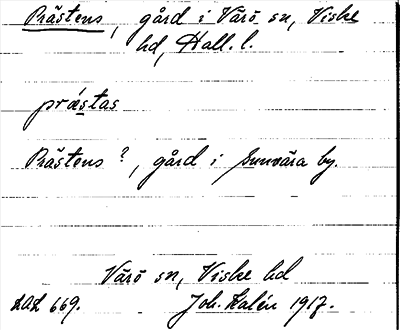 Prästens, gård i Värö sn, Viske
hd, Hall. l.
præstas
Prästens ?, gård i Sunvära by.
Värö sn, Viske hd
LAL 669. Joh. Kalén 1917.